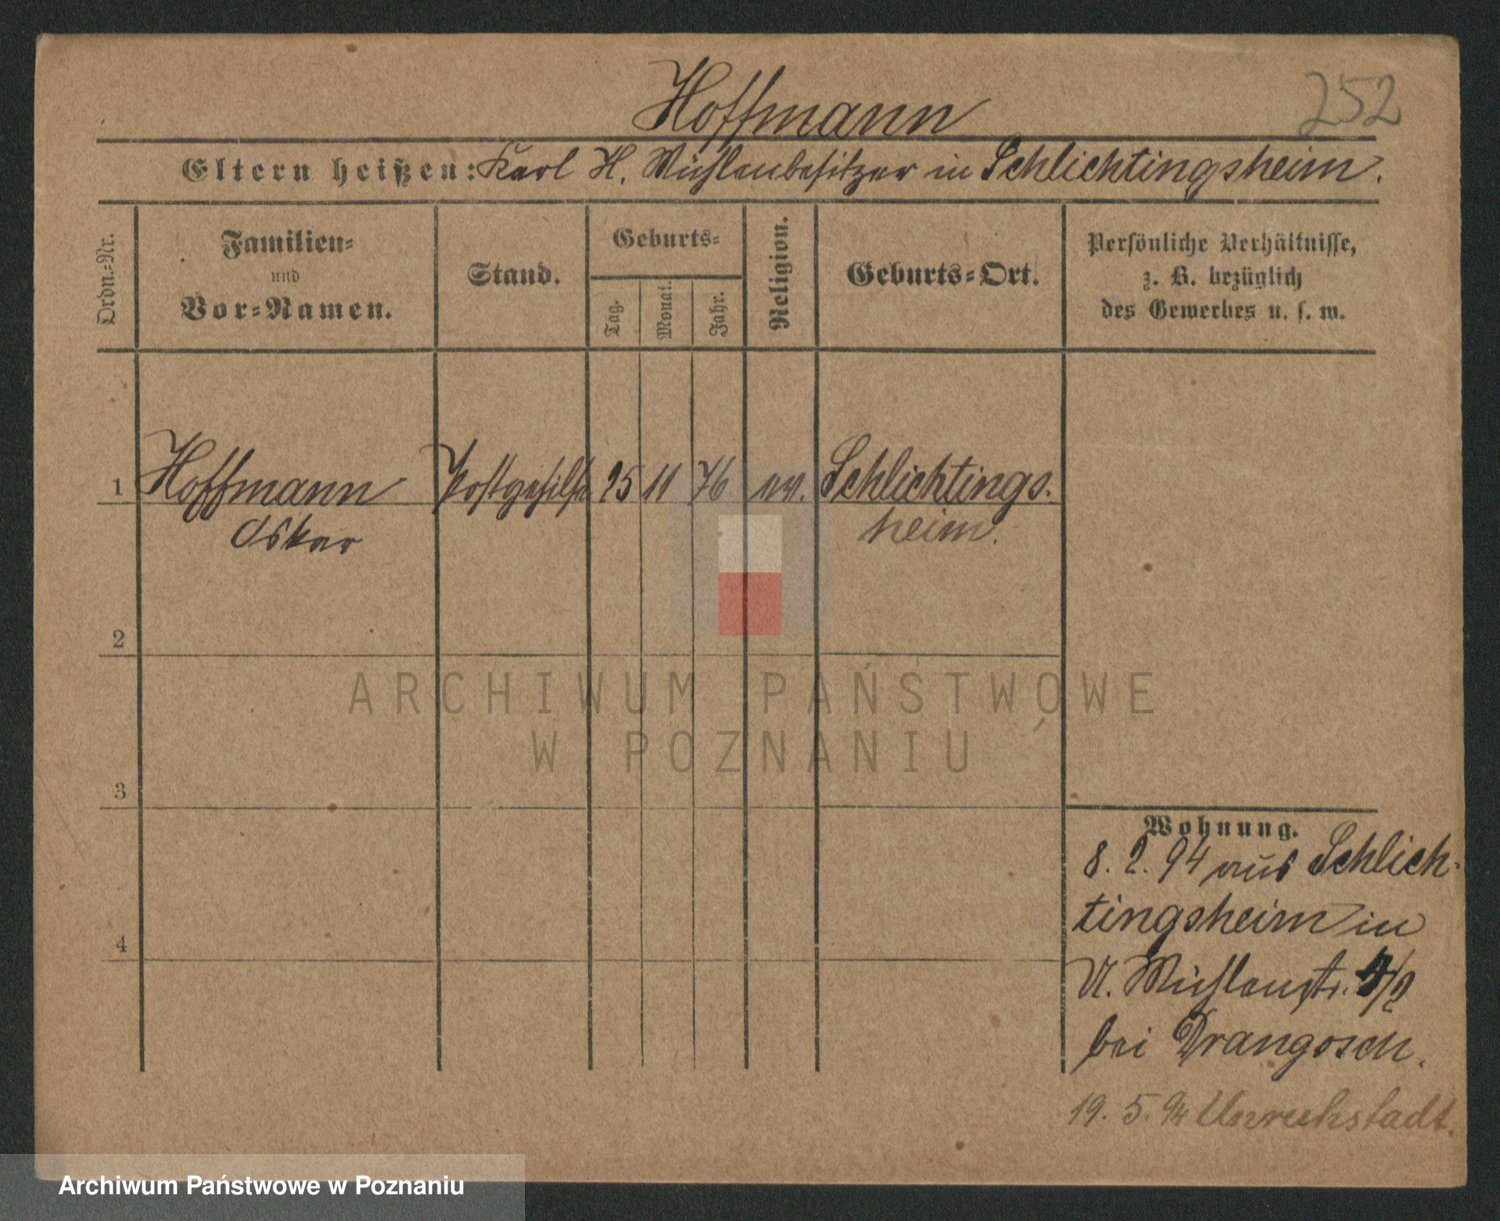 Hoffmann
252
Eltern heißen: Karl H. Mühlenbesitzer in Schlichtingsheim.
Ordn.-Nr.
Familien-
und
Vor-Namen.
Stand.
Geburts-
Tag.
Monat.
Jahr.
Religion.
Geburts-Ort.
Persönliche Verhältnisse,
z. B. bezüglich
des Gewerbes u. s. w.
1 Hoffmann Postgehilfe 25 11 76 ev. Schlichtings-
Oskar heim.
2
3
4
Wohnung.
8. 2. 94 aus Schlich-
tingsheim in
U. Mühlenstr. /2
bei Drangosch.
19. 5. 94 Unruhstadt.
ARCHIWUM PAŃSTWOWE
W POZNANIU
Archiwum Państwowe w Poznaniu